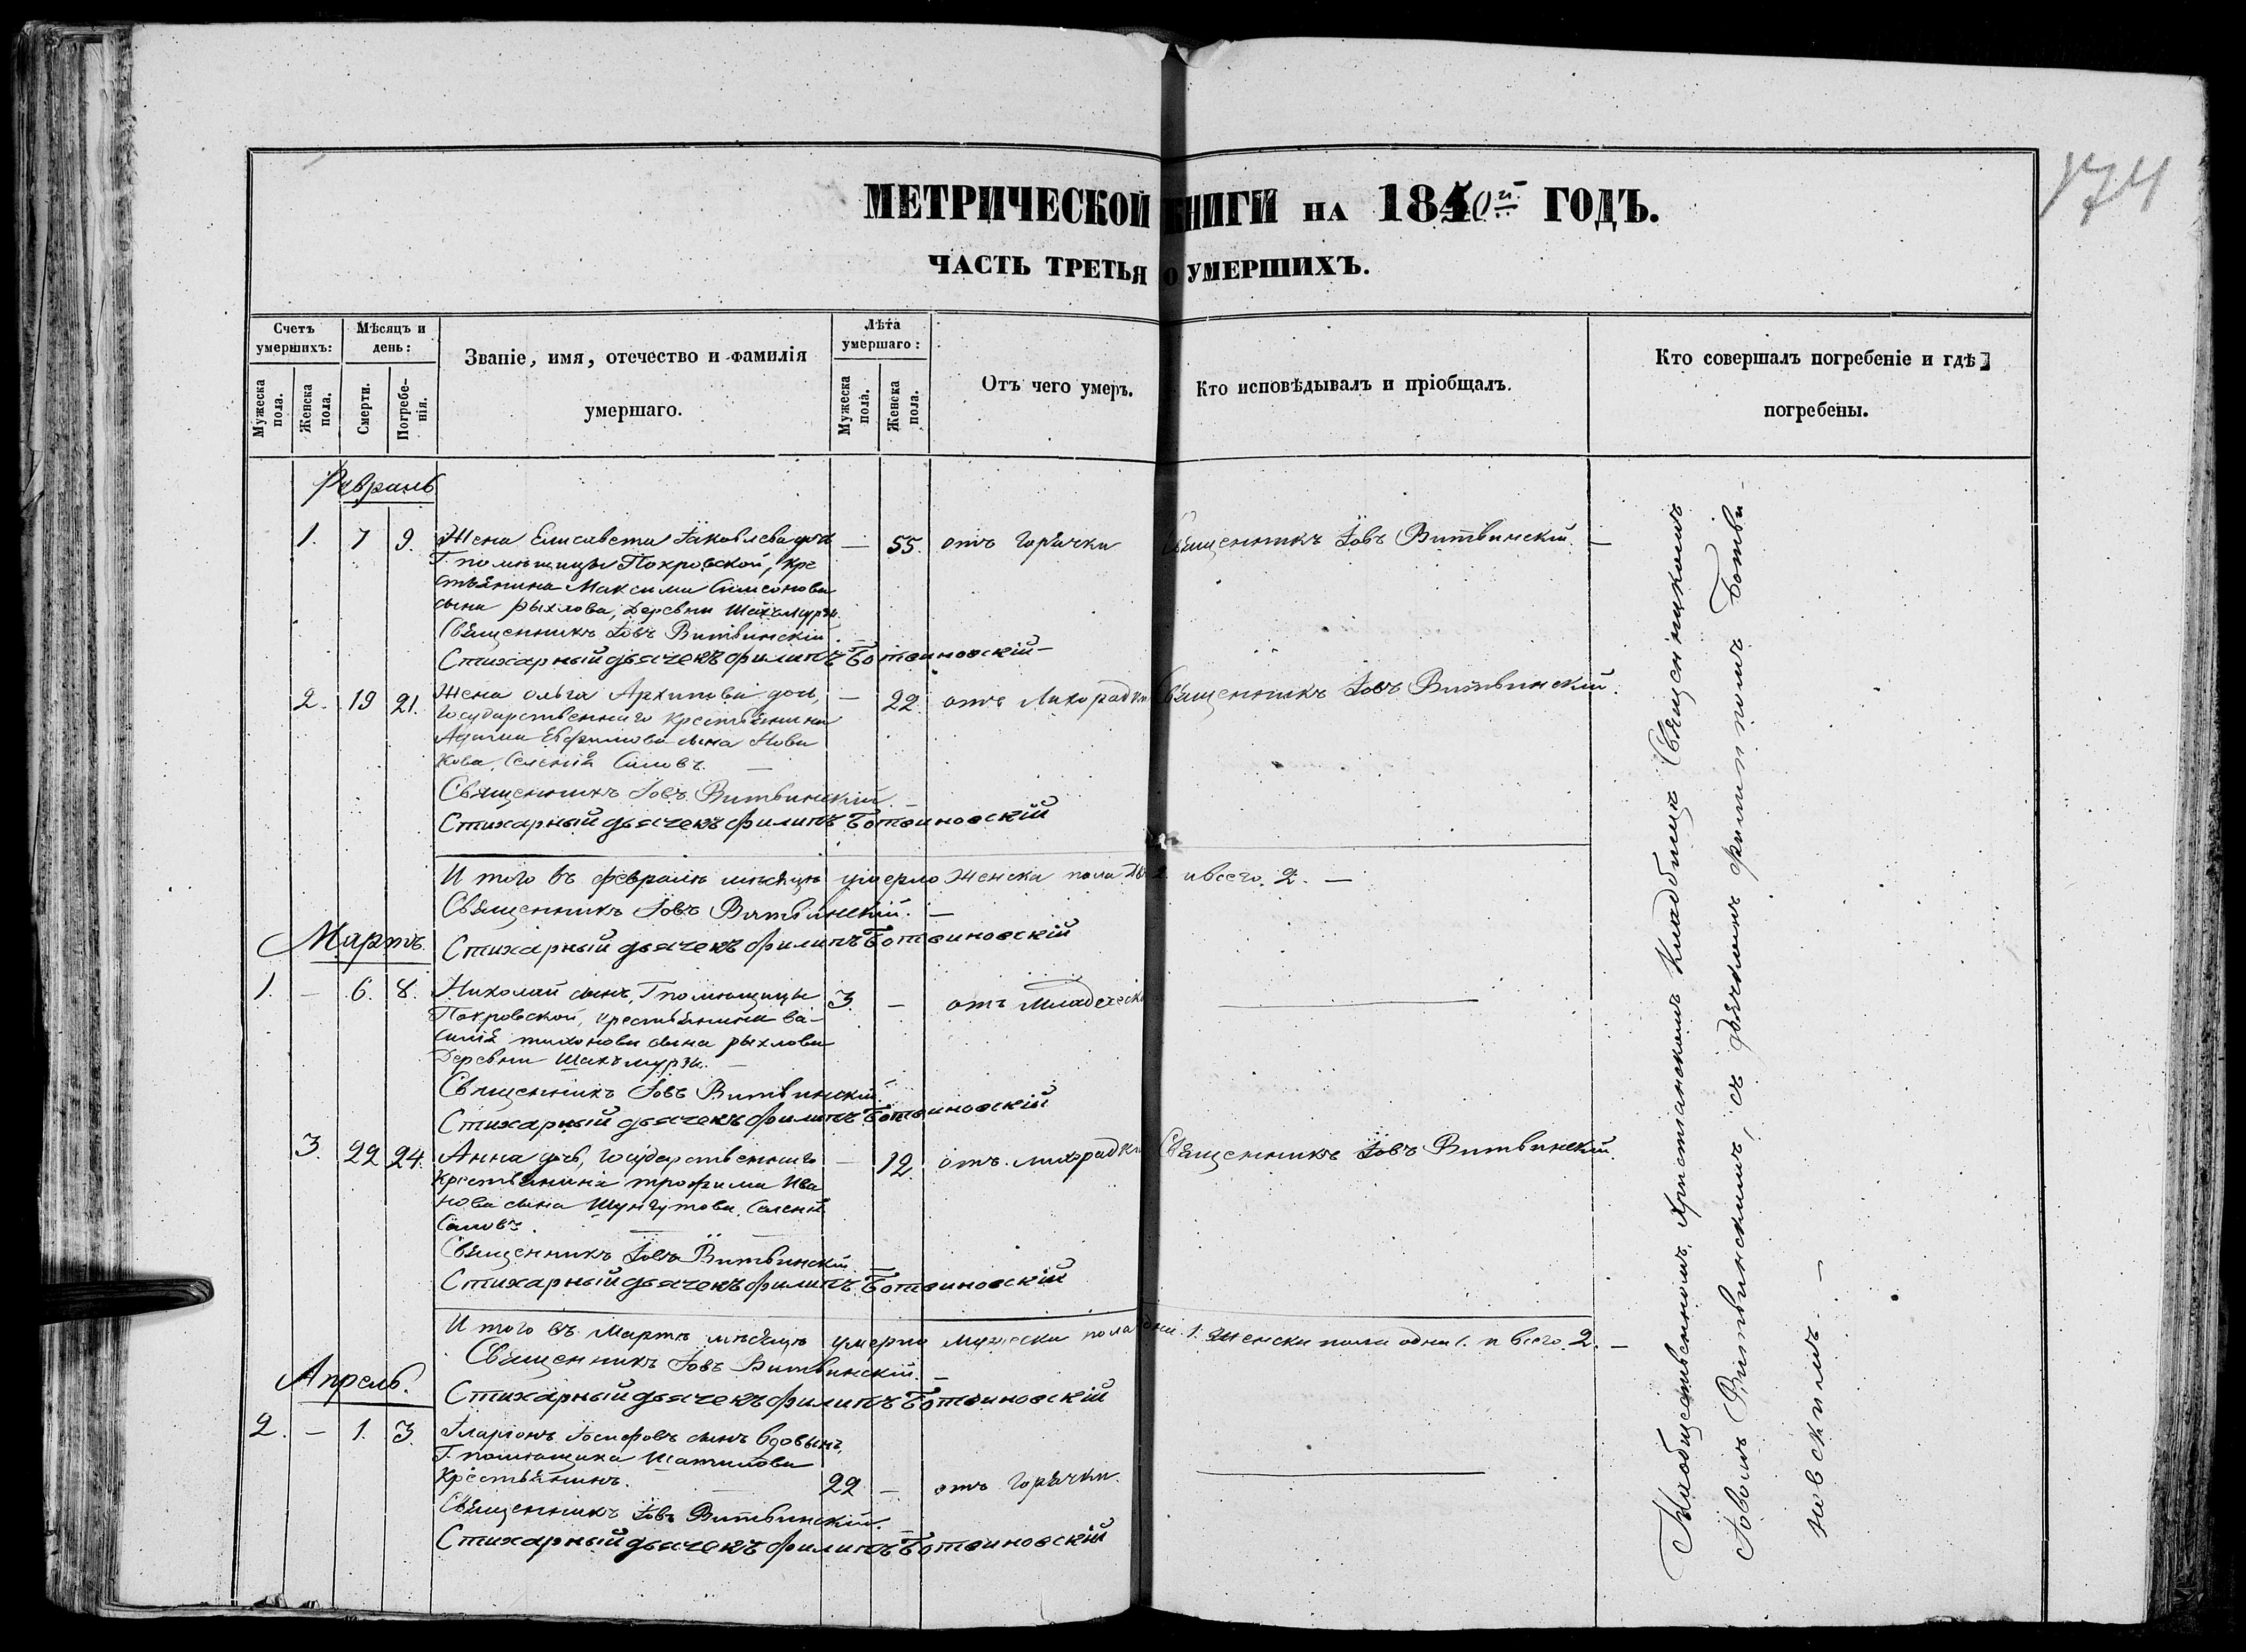 174
МЕТРИЧЕСКОЙ КНИГИ НА 1850й ГОДЪ.
ЧАСТЬ ТРЕТЬЯ О УМЕРШИХЪ.
Счетъ умершихъ:
Мужеска пола.
Женска пола.
Мѣсяцъ и день:
Смерти.
Погребе-
нія.
Званіе, имя, отечество и фамилія
умершаго.
Лѣта умершаго:
Мужеска пола.
Женска пола.
Отъ чего умеръ.
Кто исповѣдывалъ и пріобщалъ.
Кто совершалъ погребеніе и гдѣ
погребены.
Февраль
1. 7 9. Жена Елисавета Іаковлева — 55. отъ Горячки Священникъ Іовъ Витвинскій. —
Г. помѣщицы Покровской, кре
стьянина Максима Симеонова
сына Рыхлова, Деревни Шахъмурзы.
Священникъ Іовъ Витвинскій. —
Стихарный дьячекъ Филипъ Ботвиновскій —
2. 19 21. Жена Ольга Архипова — 22. отъ Лихорадки Священникъ Іовъ Витвинскій.
Государственнаго крестьянина
Евфимова сына Нови
кова, Селенія Саловъ. —
Священникъ Іовъ Витвинскій. —
Стихарный дьячекъ Филипъ Ботвиновскій
И того въ Февралѣ мѣсяцѣ умерло Женска пола 2. и всего. 2. —
Священникъ Іовъ Витвинскій. —
Стихарный дьячекъ Филипъ Ботвиновскій
Мартъ.
1. — 6. 8. Николай сынъ, Г помѣщицы 3. — отъ Младеческ
Покровской, крестьянина Ва-
силія Тихонова сына Рыхлова
Деревни Шахъмурзы. —
Священникъ Іовъ Витвинскій.
Стихарный дьячекъ Филипъ Ботвиновскій
3. 22 24. Анна дочь, Государственнаго — 12. отъ лихорадки Священникъ Іовъ Витвинскій.
Крестьянина Трофима Ива
нова сына Селенія
Саловъ. —
Священникъ Іовъ Витвинскій. —
Стихарный дьячекъ Филипъ Ботвиновскій
И того въ Мартѣ мѣсяцѣ умерло мужеска пола 1. Женска пола одна 1. и всего. 2. —
Священникъ Іовъ Витвинскій. —
Стихарный дьячекъ Филипъ Ботвиновскій
Апрель.
2. — 1. 3. Іларіонъ Іосифовъ сынъ Вдовынъ,
Г. помѣщика Шатилова
Крестьянинъ. — 22 — отъ Горячки.
Священникъ Іовъ Витвинскій.
Стихарный дьячекъ Филипъ Ботвиновскій
На общественномъ, Христіанскомъ Кладбищѣ Священникомъ
Іовомъ Витвинскимъ, съ дьячкомъ Филиппомъ Ботви-
новскимъ. —